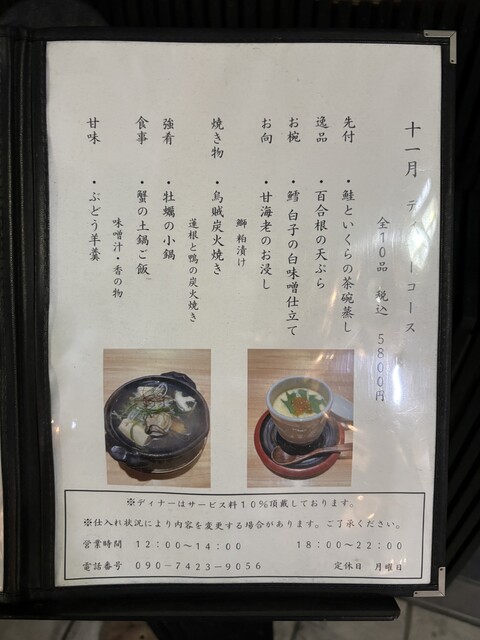 十一月 ディナーコース
全10品 税込 5800円
先付 ・鮭といくらの茶碗蒸し
逸品 ・百合根の天ぷら
お椀 ・鱈白子の白味噌仕立て
お向 ・甘海老のお浸し
鰤粕漬け
焼き物 ・烏賊炭火焼き
蓮根と鴨の炭火焼き
強肴 ・牡蠣の小鍋
食事 ・蟹の土鍋ご飯
味噌汁・香の物
甘味 ・ぶどう羊羹
※ディナーはサービス料10%頂戴しております。
※仕入れ状況により内容を変更する場合があります。ご了承ください。
営業時間 12:00~14:00 18:00~22:00
電話番号 090-7423-9056 定休日 月曜日